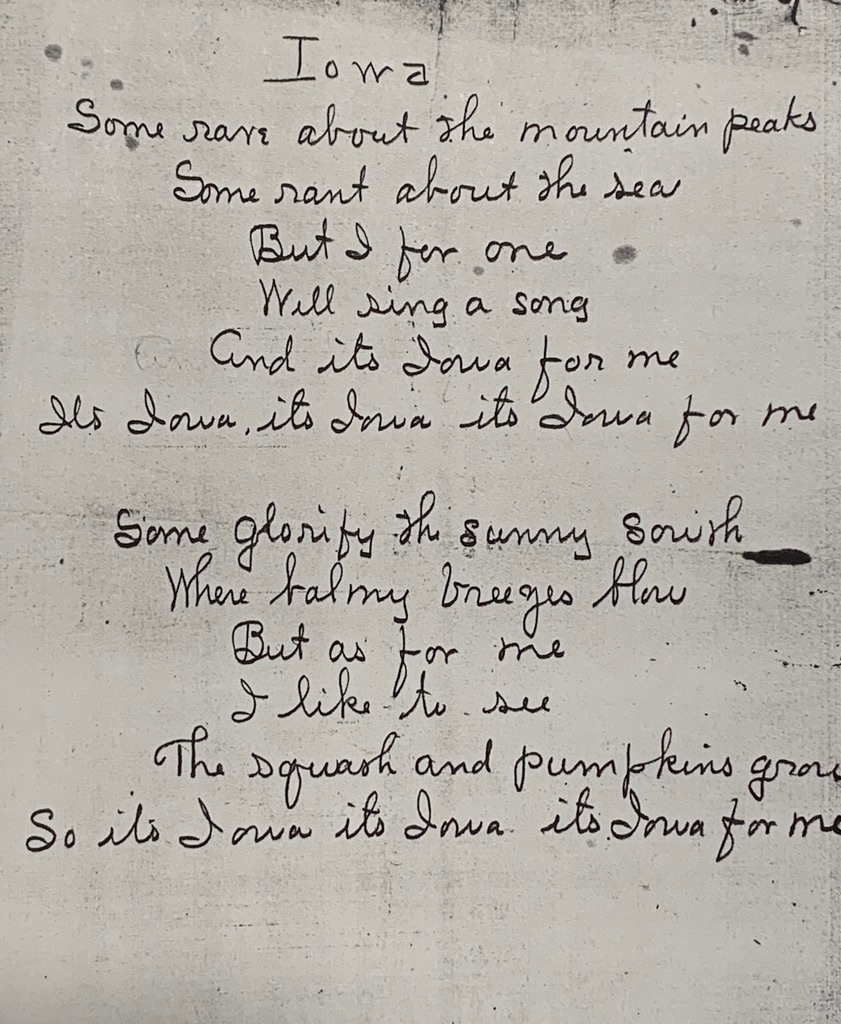 Iowa
Some rave about the mountain peaks
Some rant about the sea
But I for one
Will sing a song
And its Iowa for me
Its Iowa, its Iowa its Iowa for me
Some glorify the sunny South
Where balmy breezes blow
But as for me
I like to see
The squash and pumpkins grow
So its Iowa its Iowa its Iowa for me